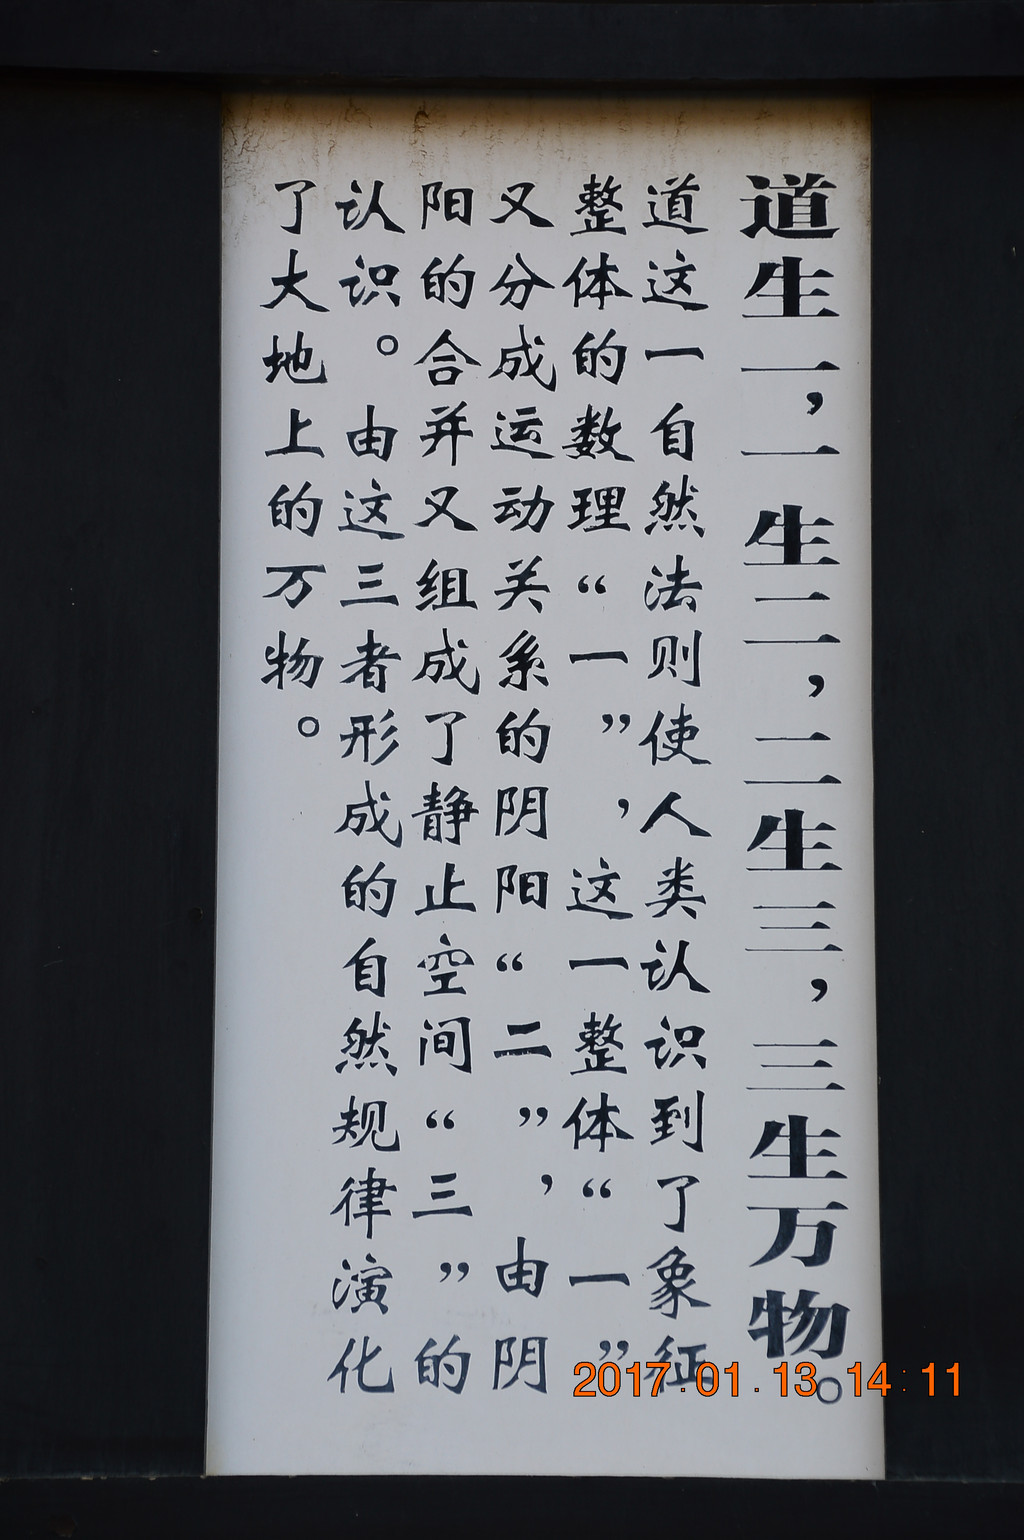 道生一，一生二，二生三，三生万物。
道这一自然法则使人类认识到了象征
整体的数理“一”，这一整体“一”
又分成运动关系的阴阳“二”，由阴
阳的合并又组成了静止空间“三”的
认识。由这三者形成的自然规律演化
了大地上的万物。
2017.01.13 14:11